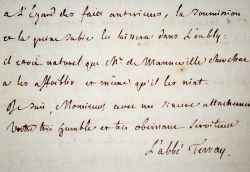 a l'Egard des faits anterieurs, la soumission
et la peine subie les laissera dans l'oubly:
il était naturel que Mr de Manneville cherchat
a les affoiblir et même qu'il les niat.
Je suis, Monsieur avec un sincere attachement
Votre tres humble et tres obeissant serviteur
L'abbé Terray.